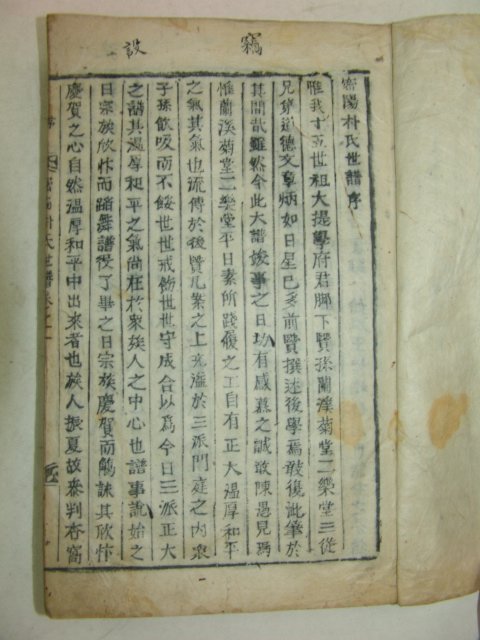 竊 設
密陽朴氏世譜序
惟我十五世祖大提學府君脚下賢孫蘭溪菊堂二樂堂三從
兄弟道德文章炳如日星已多前賢撰述後學焉敢復泚筆於
其間哉雖然今此大譜竣事之日切有感慕之誠敢陳愚見焉
惟蘭溪菊堂二樂堂平日素所踐履之工自有正大溫厚和平
之氣其氣也流傳於後賢凡案之上充溢於三派門庭之內衆
子孫飮吸而不餒世世戒飭世世守成合以爲今日三派正大
之譜其溫厚和平之氣尙在於衆族人之中心也譜事說始之
日宗族欣忭而踏舞譜役了畢之日宗族慶賀而觴詠其欣忭
慶賀之心自然溫厚和平中出來者也族人振夏故叅判杏窩
密陽朴氏世譜卷之一